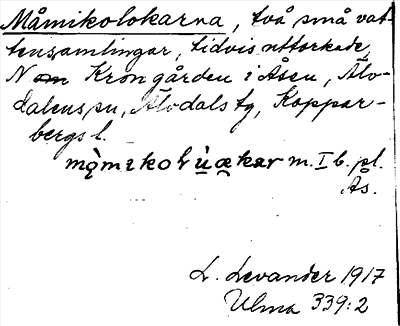 Måmikolokarna, två små vat-
tensamlingar, tidvis uttorkade,
N om Krongården i Åsen, Älv-
dalens sn, Älvdals tg, Koppar-
bergs l.
m. I b. pl.
Ås.
L. Levander 1917
Ulma 339:2